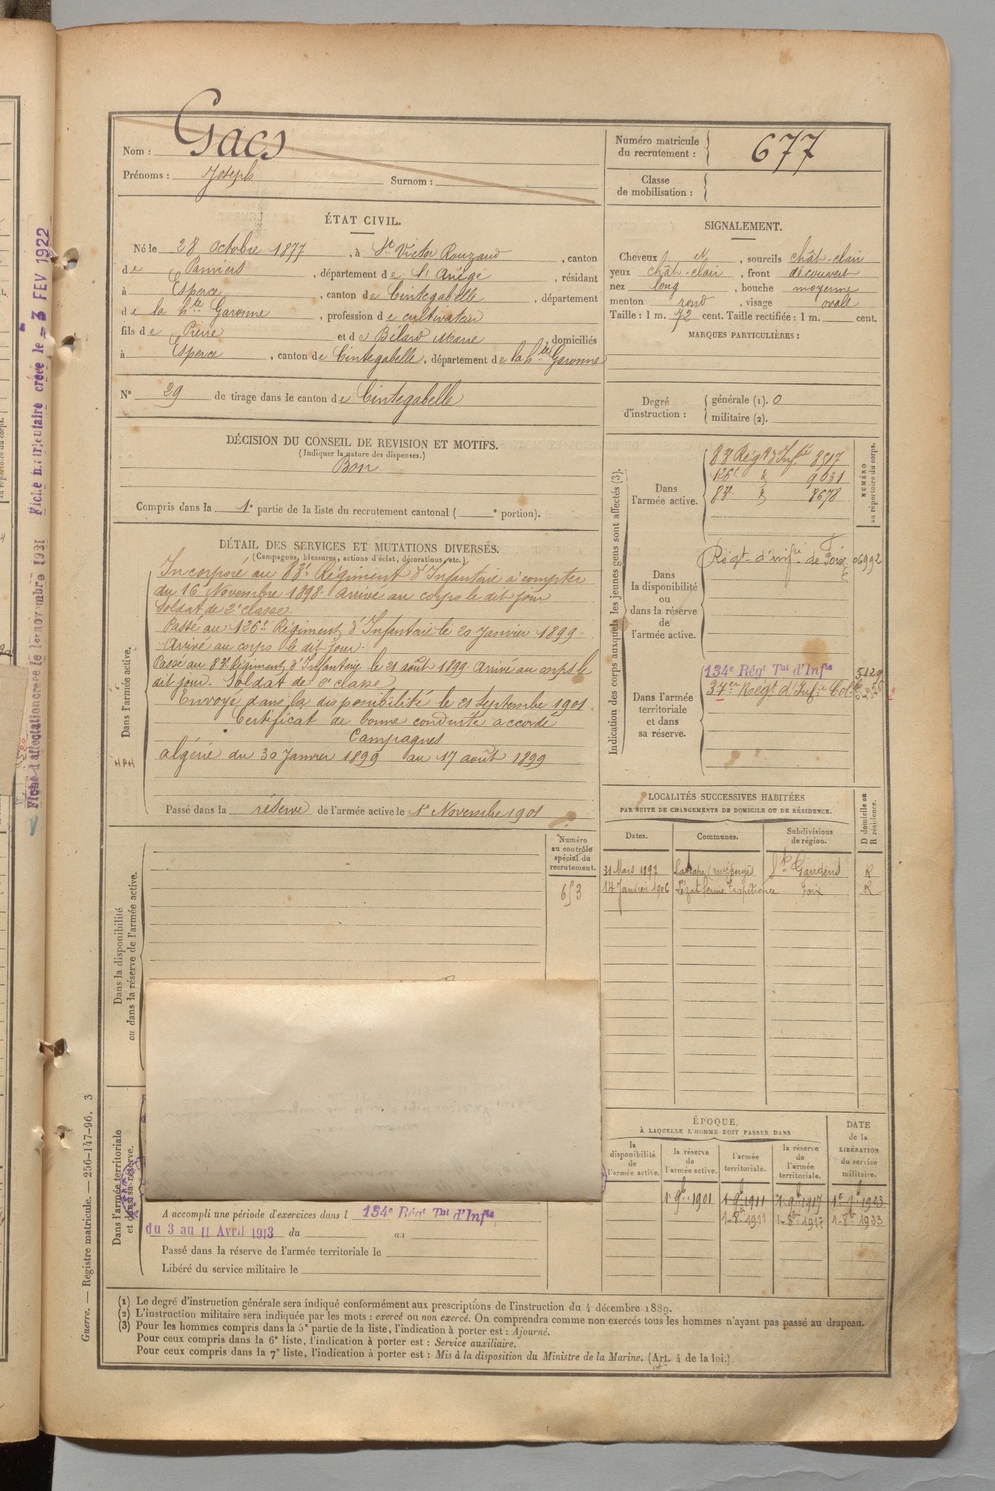 Nom : Gacs
Prénoms : Joseph Surnom :
Numéro matricule du recrutement : 677
Classe de mobilisation :
ÉTAT CIVIL.
Né le 28 octobre 1877, à St Victor Rouzaud, canton
de Pamiers, département de l'Ariège, résidant
à Esperce, canton de Cintegabelle, département
de la hte Garonne, profession de cultivateur
fils de Pierre et de Bélard Marie, domiciliés
à Esperce, canton de Cintegabelle, département de la hte Garonne
N° 29 de tirage dans le canton de Cintegabelle
SIGNALEMENT.
Cheveux et, sourcils chât-clair
yeux chât-clair, front découvert
nez long, bouche moyenne
menton rond, visage ovale
Taille : 1 m. 72 cent. Taille rectifiée : 1 m. cent.
MARQUES PARTICULIÈRES :
Degré d'instruction :
générale (1). 0
militaire (2).
DÉCISION DU CONSEIL DE REVISION ET MOTIFS.
(Indiquer la nature des dispenses.)
Bon
Compris dans la 1e partie de la liste du recrutement cantonal ( e portion).
DÉTAIL DES SERVICES ET MUTATIONS DIVERSES.
(Campagnes, blessures, actions d'éclat, décorations, etc.)
Dans l'armée active.
Incorporé au 83e Régiment d'Infanterie à compter
du 16 Novembre 1898. Arrivé au corps le dit jour
Soldat de 2e classe
Passé au 126e Régiment d'Infanterie le 20 Janvier 1899.
Arrivé au corps le dit jour.
Passé au 83e Régiment d'Infanterie le 21 août 1899. Arrivé au corps le
dit jour. Soldat de 2e classe
Envoyé dans la disponibilité le 21 Septembre 1901.
Certificat de bonne conduite accordé
Campagnes
Algérie du 30 Janvier 1899 au 17 août 1899
Passé dans la réserve de l'armée active le 1er Novembre 1901
Indication des corps auxquels les jeunes gens sont affectés (3).
NUMÉRO au répertoire du corps.
Dans l'armée active.
83 Régt d'Infie 8517
126e " 9031
83e " 8678
Dans la disponibilité ou dans la réserve de l'armée active.
Régt d'infie de Foix 06992
Dans l'armée territoriale et dans sa réserve.
134e Régt Tal d'Infie 5129
37e Régt d'Infie Colle
LOCALITÉS SUCCESSIVES HABITÉES
PAR SUITE DE CHANGEMENTS DE DOMICILE OU DE RÉSIDENCE.
Dates. Communes. Subdivisions de région. D domicile ou R résidence.
31 Mars 1892 St Gaudens R
14 Janvier 1906 Foix R
Dans la disponibilité ou dans la réserve de l'armée active.
Numéro au contrôle spécial du recrutement.
653
ÉPOQUE,
À LAQUELLE L'HOMME DOIT PASSER DANS
la disponibilité de l'armée active.
la réserve de l'armée active.
l'armée territoriale.
la réserve de l'armée territoriale.
DATE de la LIBÉRATION du service militaire.
1er 9bre 1901 1-9b-1911 1-9b-1917 1er-9b-1923
1-8b-1911 1-8b-1917 1-8b-1923
Dans l'armée territoriale et dans sa réserve.
A accompli une période d'exercices dans l 134e Régt Tal d'Infie
du 3 au 11 Avril 1913 du au
Passé dans la réserve de l'armée territoriale le
Libéré du service militaire le
(1) Le degré d'instruction générale sera indiqué conformément aux prescriptions de l'instruction du 4 décembre 1889.
(2) L'instruction militaire sera indiquée par les mots : exercé ou non exercé. On comprendra comme non exercés tous les hommes n'ayant pas passé au drapeau.
(3) Pour les hommes compris dans la 5e partie de la liste, l'indication à porter est : Ajourné.
Pour ceux compris dans la 6e liste, l'indication à porter est : Service auxiliaire.
Pour ceux compris dans la 7e liste, l'indication à porter est : Mis à la disposition du Ministre de la Marine. (Art. 4 de la loi.)
Guerre. — Registre matricule. — 256-147-96. 3
Fiche d'affectation créée le 1er novembre 1921
Fiche matriculaire créée le = 3 FEV 1922